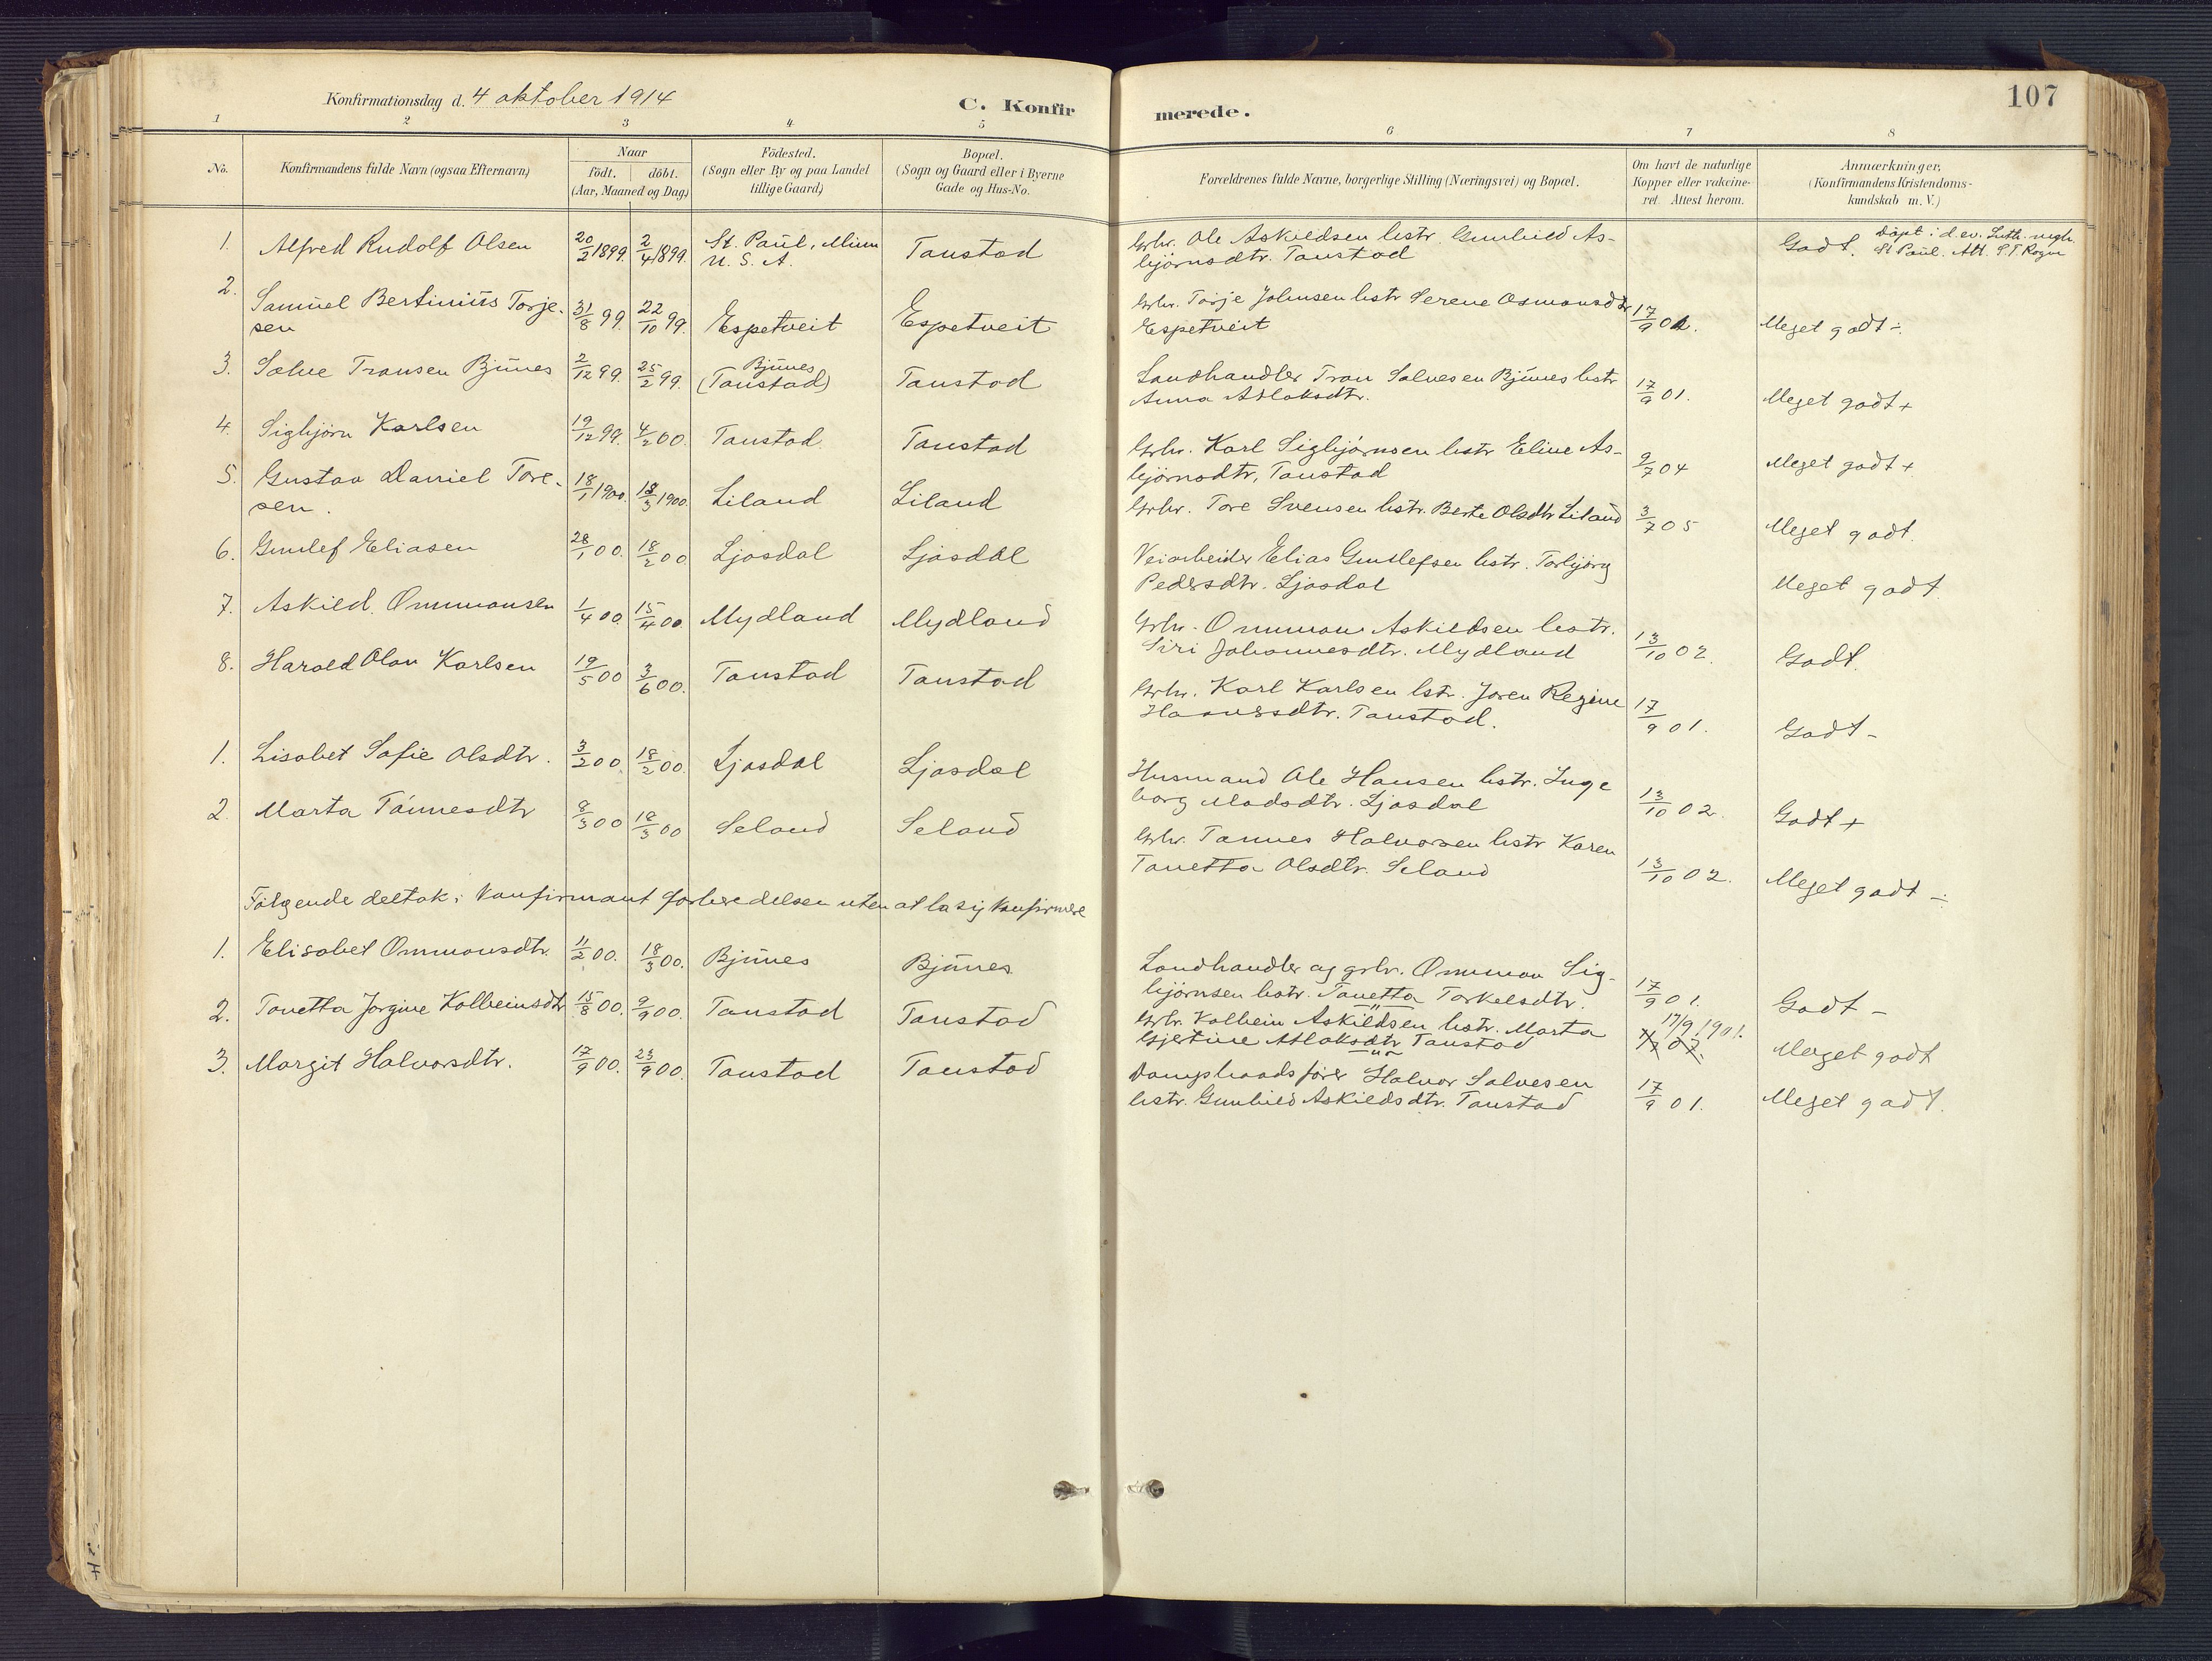 Konfirmationsdag d. 4 oktober 1914
C. Konfirmerede.
107
1 2 3 4 5 6 7 8
No.
Konfirmandens fulde Navn (ogsaa Efternavn)
Naar
födt. döbt.
(Aar, Maaned og Dag.)
Födested.
(Sogn eller By og paa Landet
tillige Gaard)
Bopæl.
(Sogn og Gaard eller i Byerne
Gade og Hus-No.
Forældrenes fulde Navne, borgerlige Stilling (Næringsvei) og Bopæl.
Om havt de naturlige
Kopper eller vakcine-
ret. Attest herom.
Anmærkninger,
(Konfirmandens Kristendoms-
kundskab m. V.)
1. Alfred Rudolf Olsen 20/2 1899. 2/4 1899. St. Paul, Minn U. S. A. Tanstad
Grbr. Ole Askildsen hstr. Gunhild As-
björnsdtr. Tanstad
Godt. Döpt i d. ev. Luth. mgh. St Paul. Att.
2. Samuel Bertinius Torje-
sen 31/8 99. 22/10 99. Espetveit Espetveit
Grbr. Torje Johnsen hstr Serene Osmonsdtr
Espetveit 17/9 01. Meget godt ÷
3. Salve Transen Bjunes 2/12 99. 25/2 99. Bjunes (Tanstad) Tanstad
Landhandler Tron Salvesen Bjunes hstr
Anna Atlaksdtr. 17/9 01. Meget godt +
4. Sigbjörn Karlsen 19/12 99. 4/2 00. Tanstad. Tanstad
Grbr. Karl Sigbjörnsen hstr Eline As-
björnsdtr, Tanstad 9/7 04 Meget godt +
5. Gustav Daniel Tore-
sen. 18/1 1900. 18/3 1900. Liland Liland
Grbr. Tore Svensen hstr. Berte Olsdtr Liland 3/7 05 Meget godt.
6. Gunlef Eliasen 28/1 00. 18/2 00. Ljosdal Ljosdal
Veiarbeider Elias Gunlefsen hstr. Torbjörg
Pedersdtr. Ljosdal Meget godt.
7. Askild. Ommonsen 1/4 00. 15/4 00. Mydland Mydland
Grbr. Ommon Askildsen hstr.
Siri Johannesdtr. Mydland 13/10 02. Godt.
8. Harald Olav Karlsen 19/5 00 3/6 00. Tanstad Tanstad
Grbr. Karl Karlsen hstr. Joren Regine
Hansdtr. Tanstad. 17/9 01. Godt -
1. Lisabet Sofie Olsdtr. 3/2 00. 18/2 00. Ljosdal Ljosdal
Husmand Ole Hansen hstr. Inge
borg Madsdtr. Ljosdal 13/10 02. Godt +
2. Marta Tönnesdtr 8/3 00 18/3 00 Seland Seland
Grbr. Tönnes Halvorsen hstr Karen
Tonetta Olsdtr. Seland 13/10 02. Meget godt ÷
Fölgende deltok i konfirmantforberedelsen uten at la sig konfirmere
1. Elisabet Ommonsdtr. 11/2 00. 18/3 00. Bjunes Bjunes
Landhandler og grbr. Ommon Sig-
björnsen hstr. Tonetta Torkelsdtr. 17/9 01. Godt -
2. Tonetta Jorgine Kolbeinsdtr 15/8 00. 9/9 00. Tanstad Tanstad
Grbr. Kolbein Askildsen hstr. Marta
Gjetine Atlaksdtr Tanstad 17/9 1901. Meget godt
3. Margit Halvorsdtr. 17/9 00. 23/9 00. Tanstad Tanstad
Dampbaadsförer Halvor Salvesen
hstr. Gunhild Askildsdtr. Tanstad 17/9 01. Meget godt.